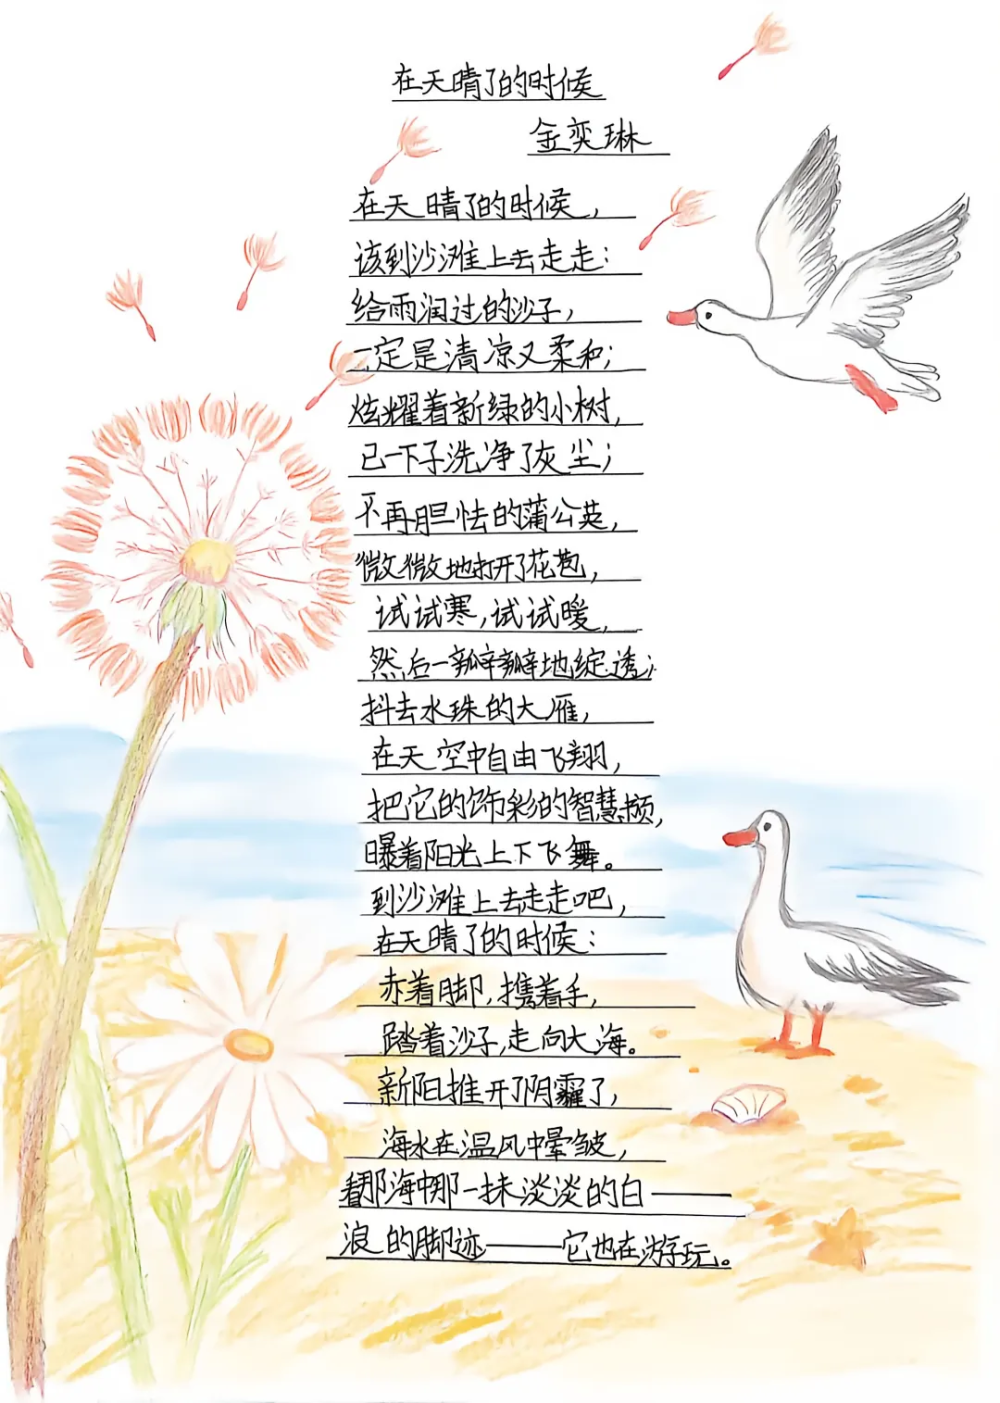 在天晴了的时候
金奕琳
在天晴了的时候，
该到沙滩上去走走：
给雨润过的沙子，
一定是清凉又柔和；
炫耀着新绿的小树，
已一下子洗净了灰尘；
不再胆怯的蒲公英，
微微地打开了花苞，
试试寒，试试暖，
然后一瓣瓣地绽透；
抖去水珠的大雁，
在天空中自由飞翔，
把它的饰彩的智慧
曝着阳光上下飞舞。
到沙滩上去走走吧，
在天晴了的时候：
赤着脚，携着手，
踏着沙子，走向大海。
新阳推开了阴霾了，
海水在温风中晕皱，
看那海中那一抹淡淡的白——
浪的脚迹——它也在游玩。